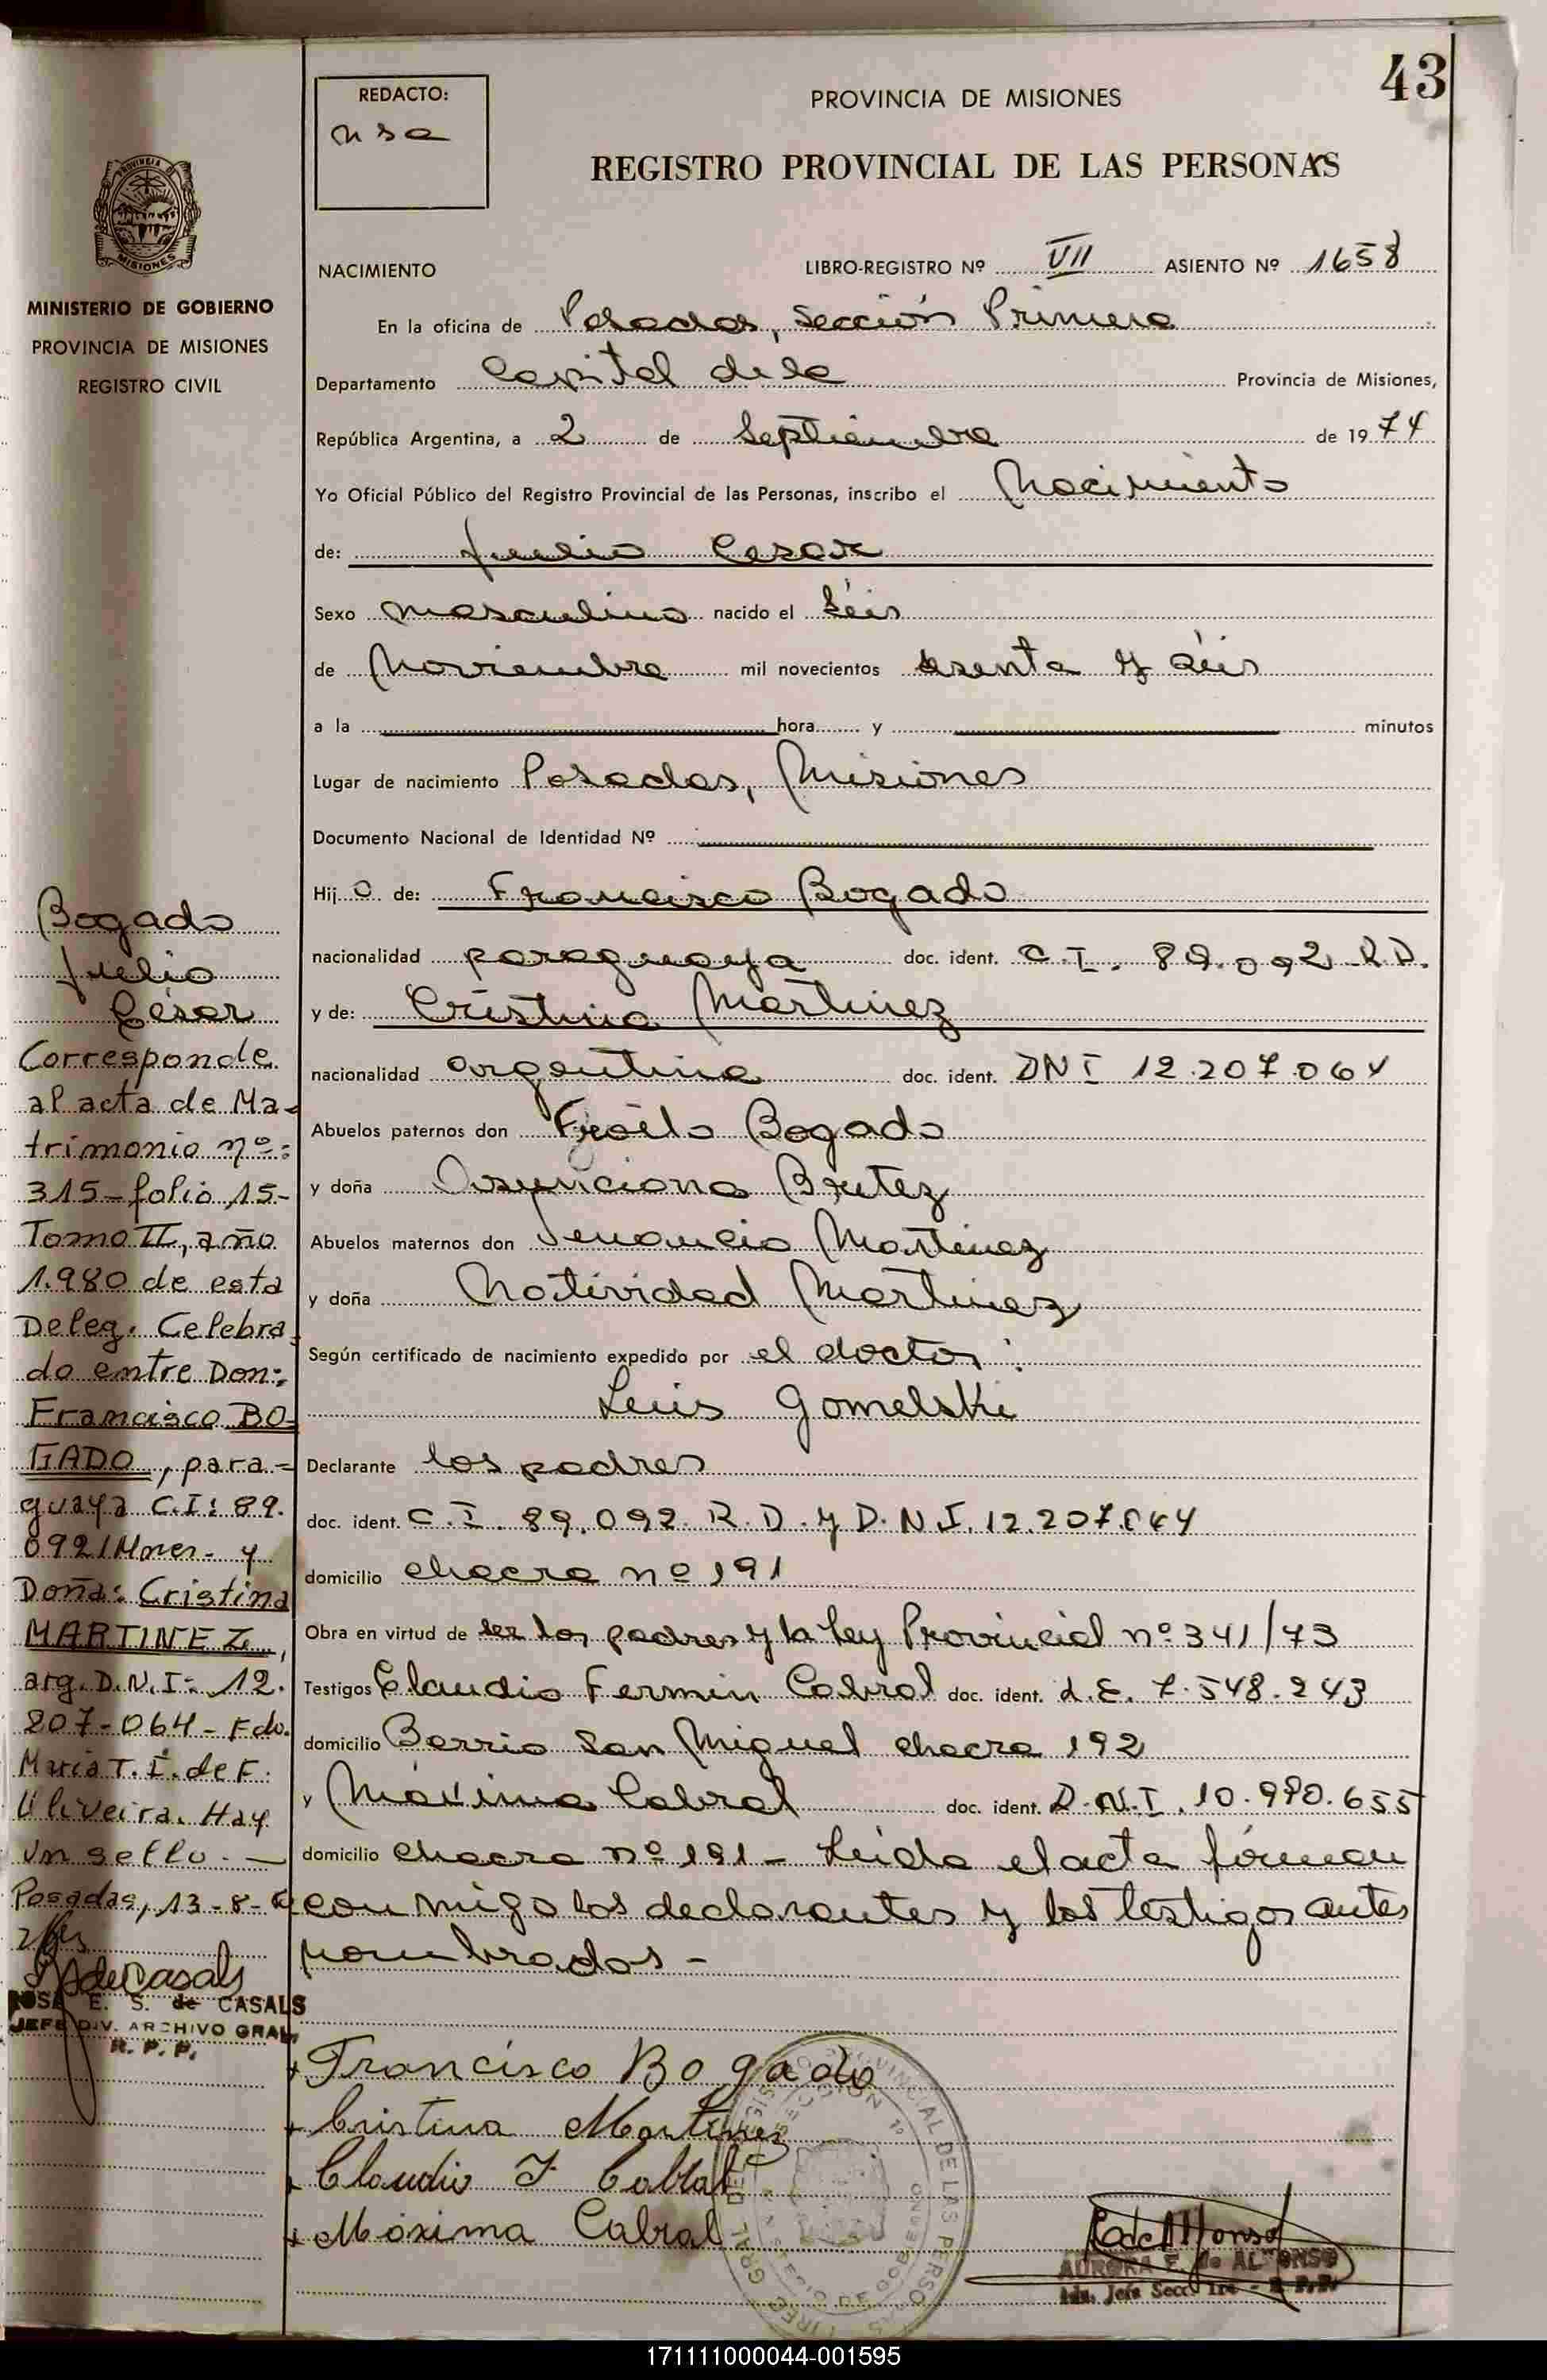 43
REDACTO:
PROVINCIA DE MISIONES
REGISTRO PROVINCIAL DE LAS PERSONAS
PROVINCIA
MISIONES
MINISTERIO DE GOBIERNO
PROVINCIA DE MISIONES
REGISTRO CIVIL
NACIMIENTO LIBRO-REGISTRO Nº VII ASIENTO Nº 1658
En la oficina de Posadas, Sección Primera
Departamento Capital de la Provincia de Misiones,
República Argentina, a 2 de Septiembre de 1974
Yo Oficial Público del Registro Provincial de las Personas, inscribo el Nacimiento
de: Julio Cesar
Sexo masculino nacido el Séis
de Noviembre mil novecientos sesenta y séis
a la hora y minutos
Lugar de nacimiento Posadas, Misiones
Documento Nacional de Identidad Nº
Hijo de: Francisco Bogado
nacionalidad paraguaya doc. ident. C.I. 89.092 R.D.
y de: Cristina Martinez
nacionalidad argentina doc. ident. DNI 12.207.064
Abuelos paternos don Bogado
y doña Asunciona Britez
Abuelos maternos don Venancio Martinez
y doña Natividad Martinez
Según certificado de nacimiento expedido por el doctor:
Luis Gomelski
Declarante los padres
doc. ident. C.I. 89.092. R.D. y D.N.I. 12.207.064
domicilio chacra nº 191
Obra en virtud de ser los padres y la ley Provincial nº 341/73
Testigos Claudio Fermin Cabral doc. ident. L.E. 7.548.243
domicilio Barrio San Miguel chacra 192
y Máxima Cabral doc. ident. D.N.I. 10.990.655
domicilio chacra nº 191 - Leida el acta firman
conmigo los declarantes y los testigos antes
nombrados -
Bogado
Julio
César
Corresponde
al acta de Ma-
trimonio nº:
315-folio 15-
Tomo II, año
1.980 de esta
Deleg. Celebra
do entre Don:
Francisco BO-
GADO, para-
guaya C.I: 89.
092/Mnes- y
Doña: Cristina
MARTINEZ,
arg. D.N.I: 12.
207-064- Fdo.
Maria T. E. de F.
Oliveira. Hay
un sello. -
Posadas, 13-8-
ROSA E. S. de CASALS
JEFE DIV. ARCHIVO GRAL.
R. P. P.
+ Francisco Bogado
+ Cristina Martinez
+ Claudio F Cabral
+ Máxima Cabral
AURORA E. de ALFONSO
171111000044-001595